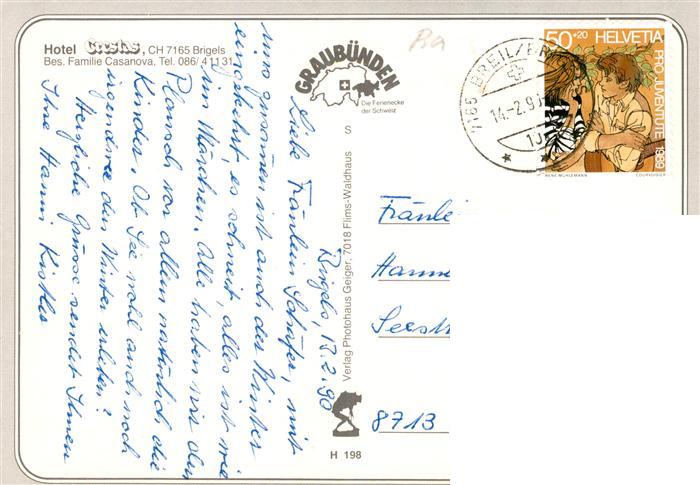 Hotel Crestas, CH 7165 Brigels
Bes. Familie Casanova, Tel. 086/ 41131
GRAUBÜNDEN
Die Ferienecke
der Schweiz
S
Verlag Photohaus Geiger, 7018 Flims-Waldhaus
H 198
7165 BREIL/BR
14.-2.90
10
50+20 HELVETIA
PRO JUVENTUTE 1989
RENE MÜHLEMANN
COURVOISIER
Brigels, 12.2.90
Liebe Fräulein Schäfer, mit
uns zusammen ist auch der Winter
eingekehrt, es schneit, alles ist wie
im Märchen. Alle haben wir den
Plausch vor allem natürlich die
Kinder. Ob Sie wohl auch noch
irgendwo den Winter erleben?
Herzliche Grüsse sendet Ihnen
Ihre Hanni
Fräulei
Hanne
Seest
8713